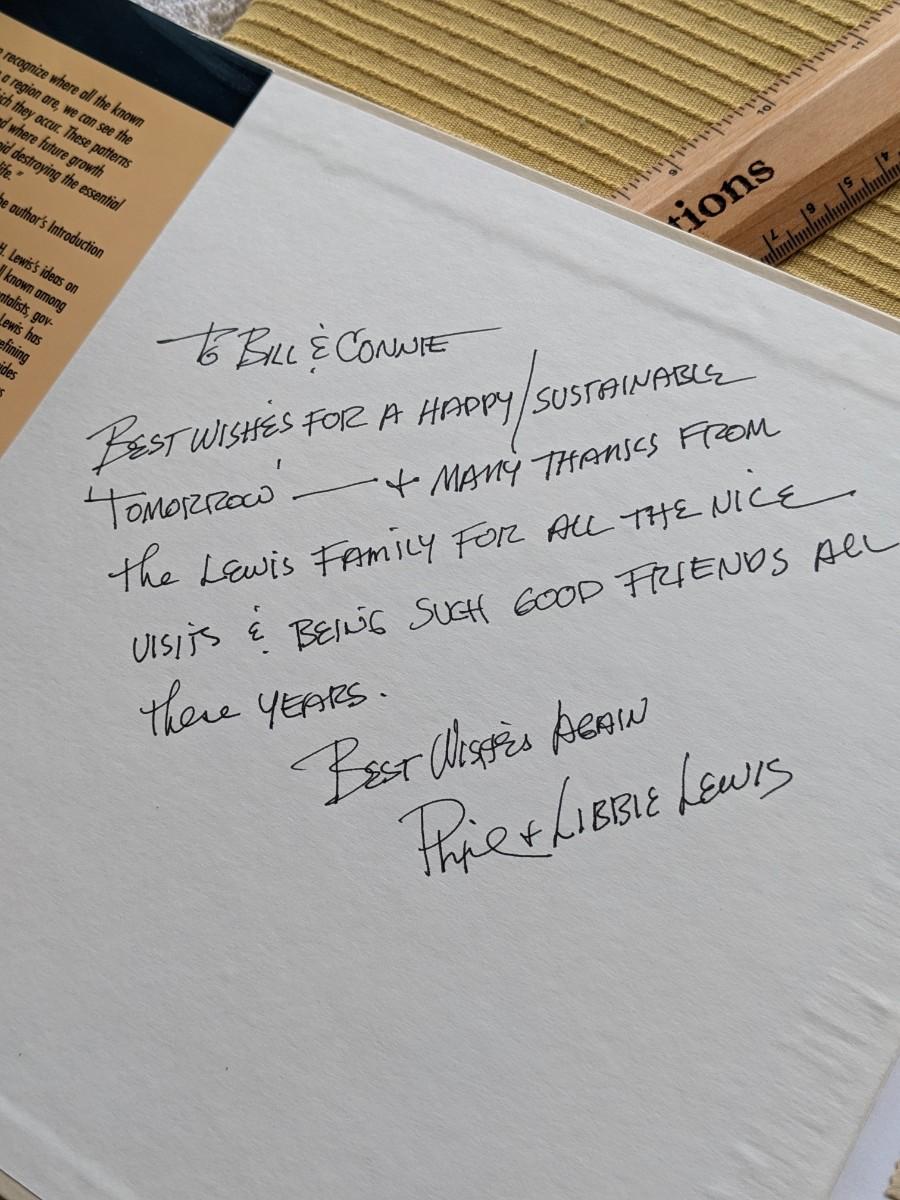 recognize where all the known
a region are, we can see the
ich they occur. These patterns
d where future growth
oid destroying the essential
life."
he author's Introduction
H. Lewis's ideas on
l known among
ntalists, gov-
Lewis has
efining
ides
s
To BILL & CONNIE
BEST WISHES FOR A HAPPY/SUSTAINABLE
'TOMORROW' — + MANY THANKS FROM
the LEWIS FAMILY FOR ALL THE NICE
VISITS & BEING SUCH GOOD FRIENDS ALL
these YEARS.
BEST WISHES AGAIN
Phil + LIBBIE LEWIS
tions
9 10 11
7 6 5 4